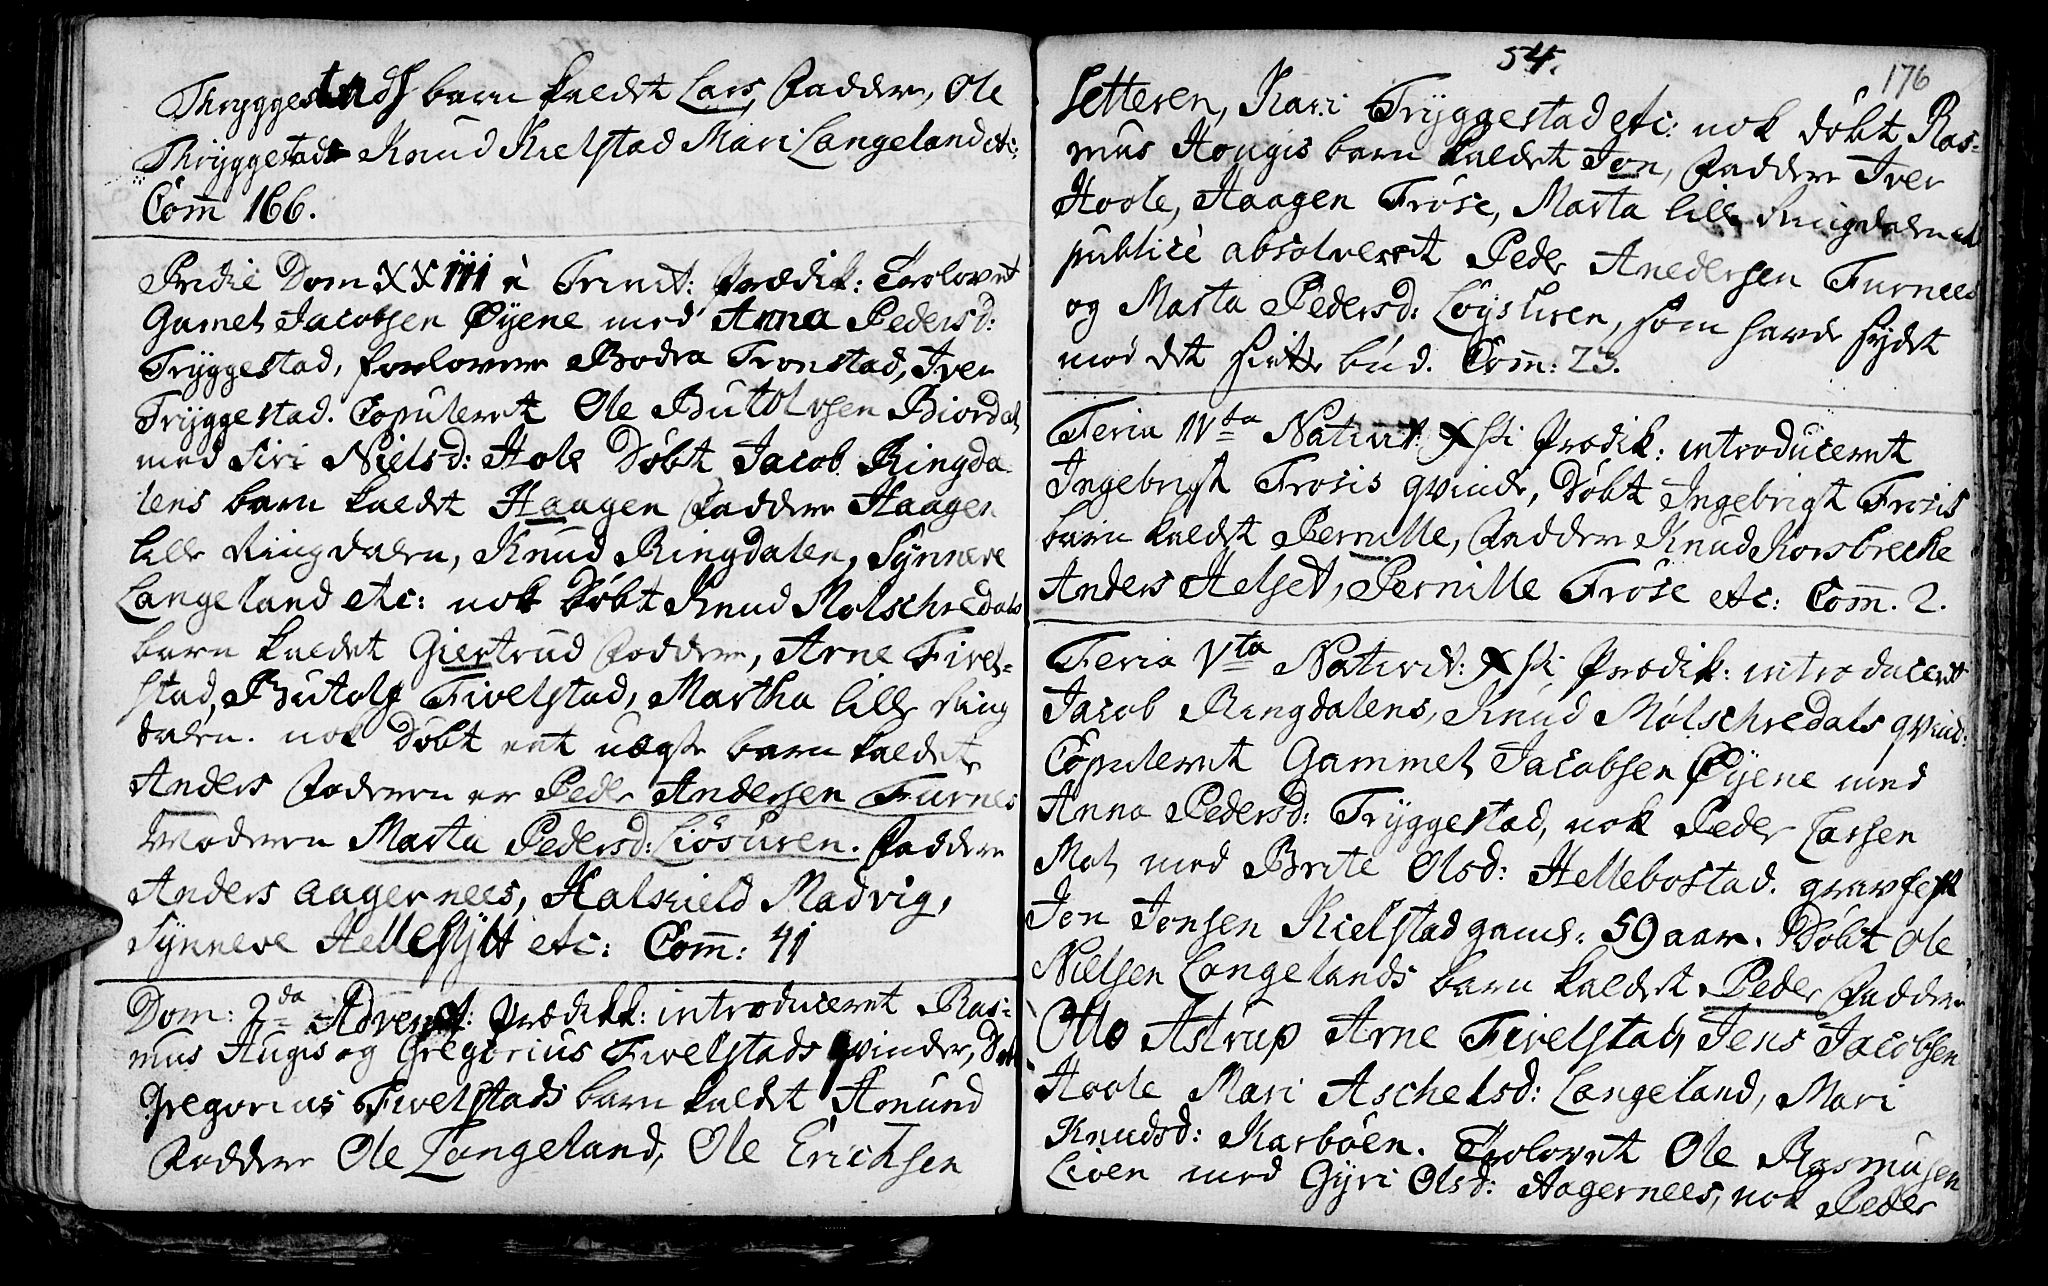 Thryggestads barn kaldet Lars, Faddere, Ole
Thryggestad Knud Kielstad Mari Langeland etc:
Com̅ 166.
Pridie Dom XXIII à Trinit: Prædik: Trolovet
Gamel Jacobsen Øyene med Anna Pedersd:
Tryggestad, forlovere Bodra Tronstad, Iver
Tryggestad. Copuleret Ole Butolvsen Biordal
med Siri Nielsd: Hole Døbt Jacob Ringda
lens barn kaldet Haagen Faddere Haagen
lille Ringdalen, Knud Ringdalen, Synneve
Langeland etc: nok Døbt Knud Molschredals
barn kaldet Giertrud Faddere, Arne Fivel-
stad, Butolf Fivelstad, Martha lille Ring
dalen. nok Døbt eet uægte barn kaldet
Anders Faderen er Peder Andersen Furnes
Moderen Marta Pedersd: Liøsuren. Faddere
Anders Aagernees, Halkield Madvig,
Synneve Hellesylt etc: Com̅: 41
Dom: 2da Advent: Prædik: introduceret Ras:
mus Augis og Gregorius Fivelstads qvinder, Døbt
Gregorius Fivelstads barn kaldet Amund
Faddere Ole Langeland, Ole Erichsen
54.
176
Setteren, Kari Tryggestad etc: nok døbt Ras-
mus Hougis barn kaldet Jon, Faddere Iver
Hoole, Haagen Frøse, Marta lille Ringdalen
publicè absolveret Peder Anedersen Furnees
og Marta Pedersd: Løysuren, som havde syndet
mod det siette bud. Com̅: 23.
Feria IVta Nativit: Xsti Prædik: introduceret
Ingebrigt Frøsis qvinde, Døbt Ingebrigt Frøsis
barn kaldet Pernille, Faddere Knud Korsbrecke
Anders Helset, Pernille Frøse etc: Com̅. 2.
Feria Vta Nativit: Xsti Prædik: introduceret
Jacob Ringdalens, Knud Mølschredals qvind:
Copuleret Gammel Jacobsen Øyene med
Anna Pedersd: Tryggestad, nok Peder Larsen
Moh med Brite Olsd: Hellebostad. gravfest
Jon Jonsen Kielstad gaml: 59 aar. Døbt Ole
Nielsen Langelands barn kaldet Peder Faddere
Otto Astrup Arne Fivelstad, Jens Jacobsen
Hoole Mari Aschelsd: Langeland, Mari
Knudsd: Karbøen. Trolovet Ole Rasmusen
Lien med Gyri Olsd: Aagernees, nok Peder